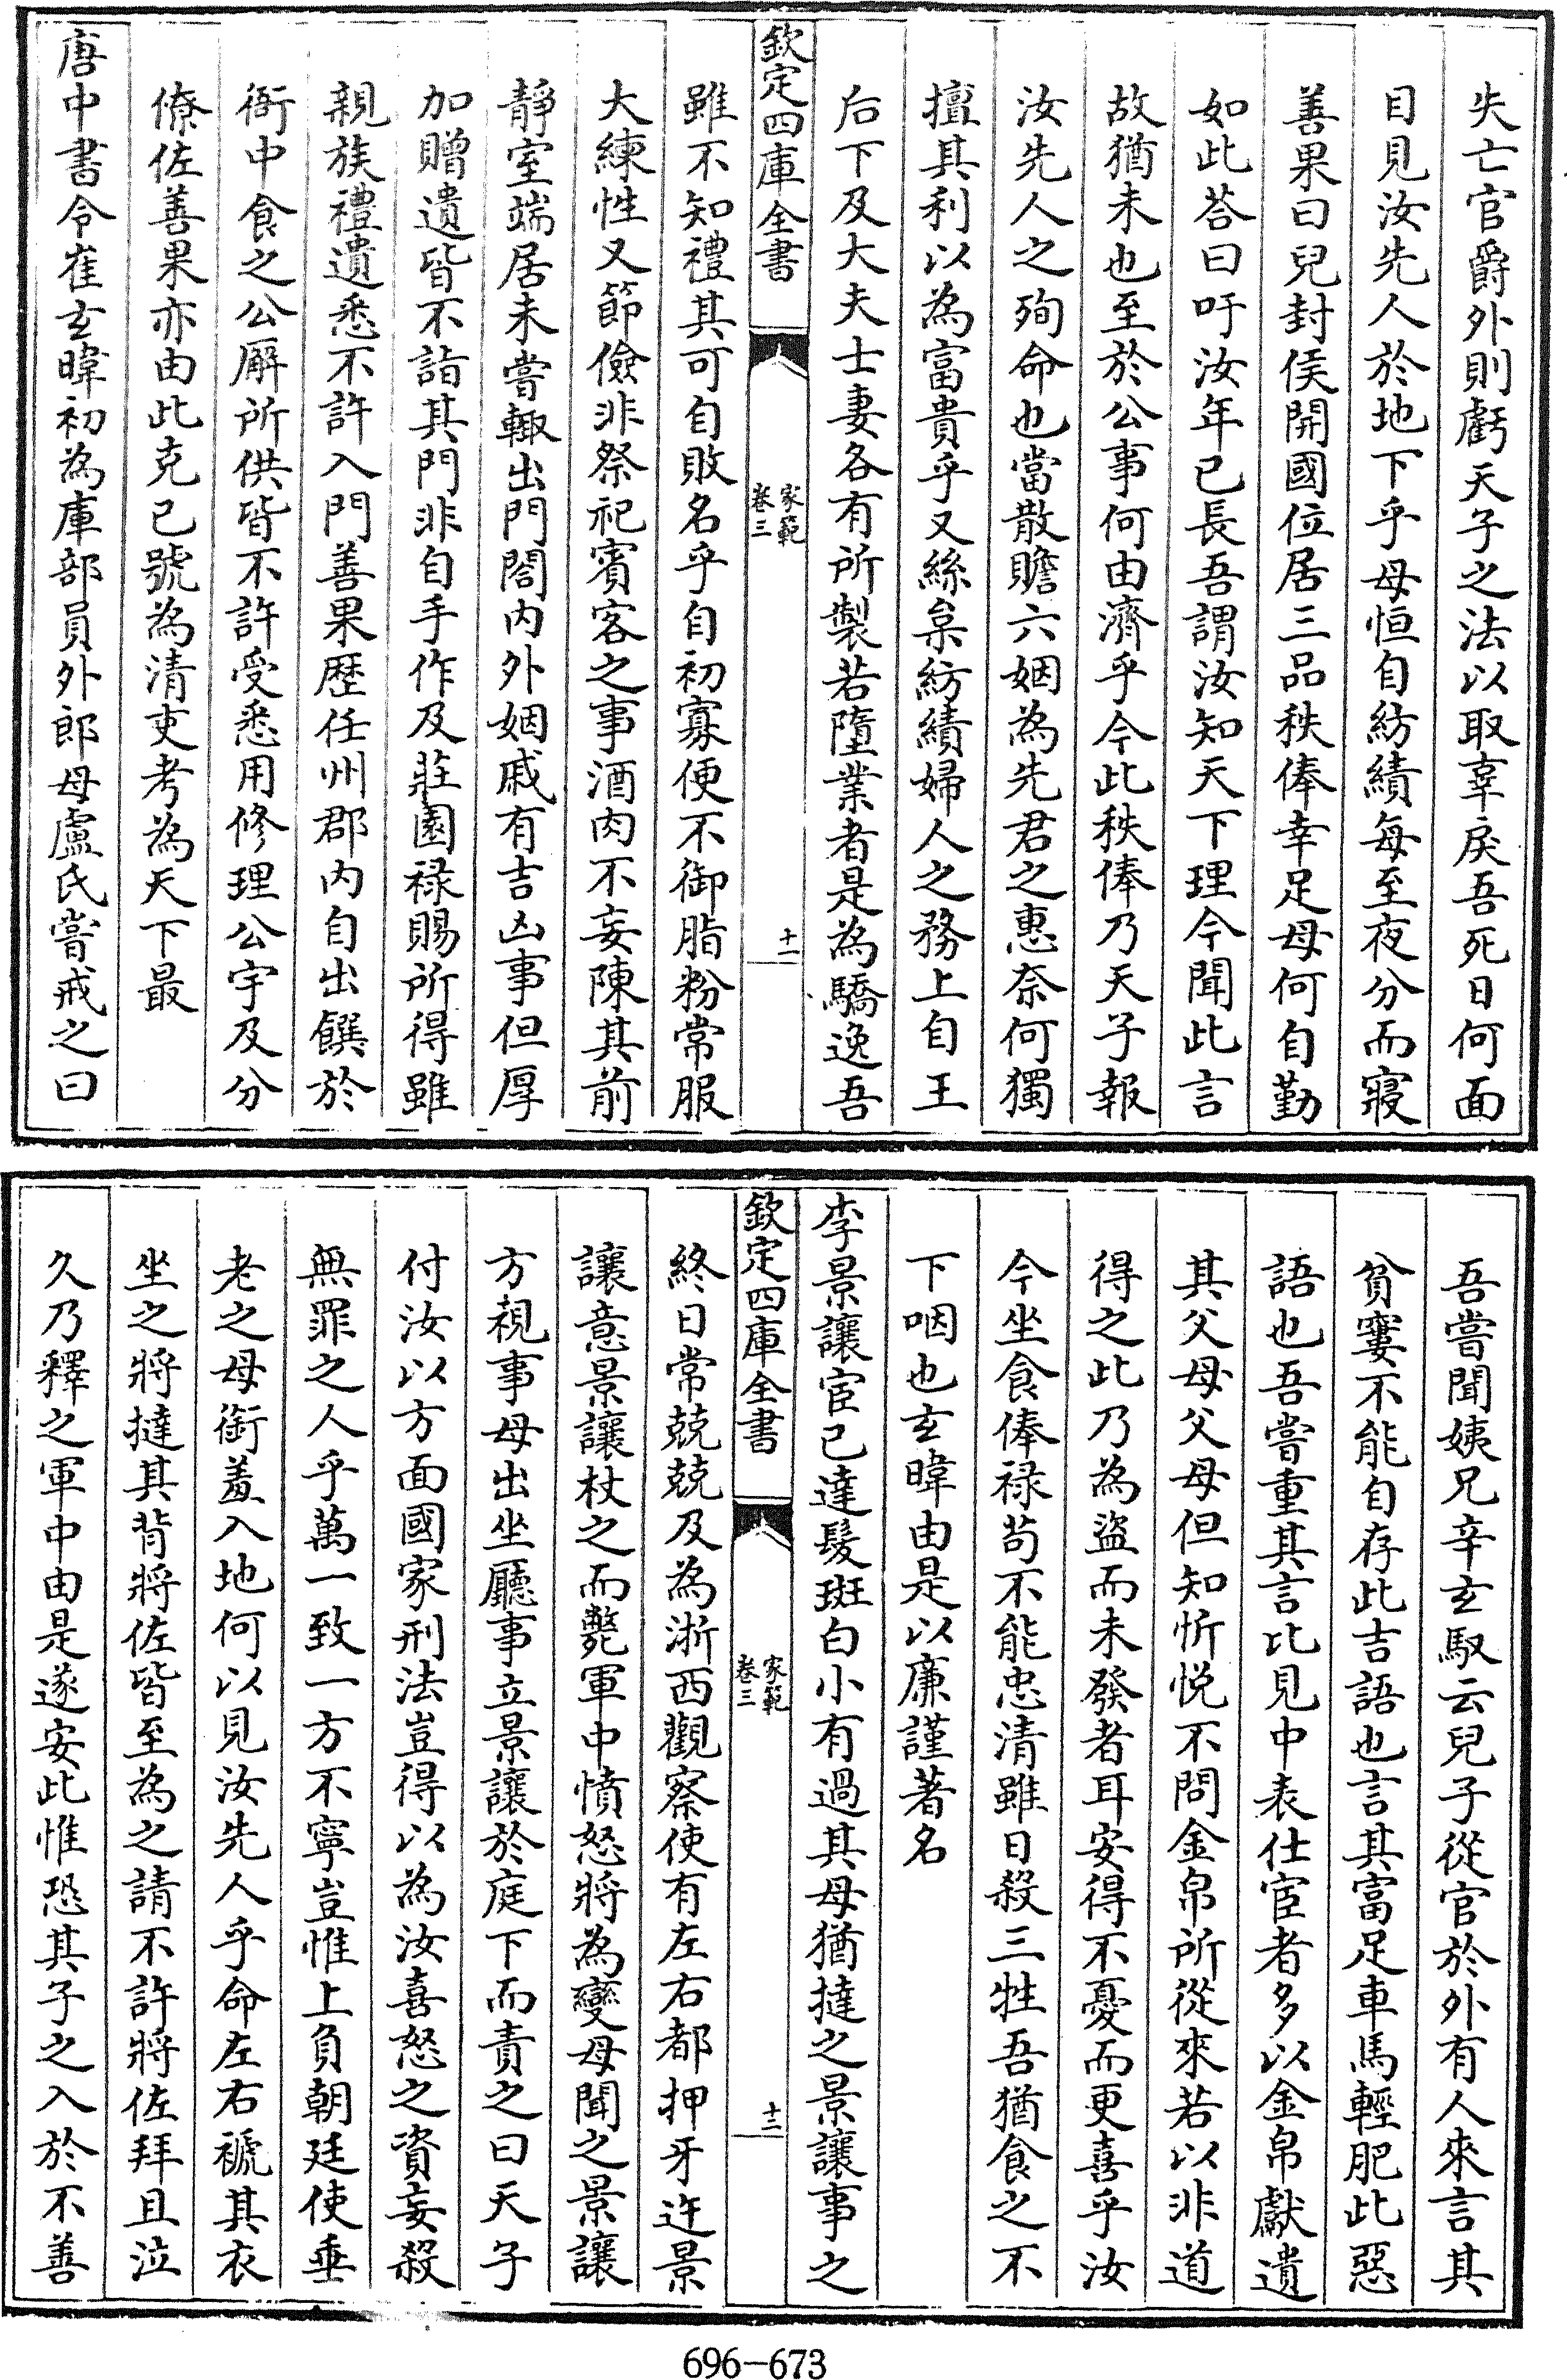 失亡官爵外則虧天子之法以取辜戾吾死日何面
目見汝先人於地下乎母恒自紡績每至夜分而寢
善果曰兒封侯開國位居三品秩俸幸足母何自勤
如此荅曰吁汝年已長吾謂汝知天下理今聞此言
故猶未也至於公事何由濟乎今此秩俸乃天子報
汝先人之殉命也當散贍六姻為先君之惠奈何獨
擅其利以為富貴乎又絲枲紡績婦人之務上自王
后下及大夫士妻各有所製若墮業者是為驕逸吾
欽定四庫全書
家範
卷三
十一
雖不知禮其可自敗名乎自初寡便不御脂粉常服
大練性又節儉非祭祀賓客之事酒肉不妄陳其前
靜室端居未嘗輙出門閤内外姻戚有吉凶事但厚
加贈遺皆不詣其門非自手作及莊園禄賜所得雖
親族禮遺悉不許入門善果歴任州郡内自出饌於
衙中食之公廨所供皆不許受悉用修理公宇及分
僚佐善果亦由此克己號為清吏考為天下最
唐中書令崔玄暐初為庫部員外郎母盧氏嘗戒之曰
吾嘗聞姨兄辛玄馭云兒子從官於外有人來言其
貧窶不能自存此吉語也言其富足車馬輕肥此惡
語也吾嘗重其言比見中表仕宦者多以金帛獻遺
其父母父母但知忻悦不問金帛所從來若以非道
得之此乃為盗而未發者耳安得不憂而更喜乎汝
今坐食俸禄苟不能忠清雖日殺三牲吾猶食之不
下咽也玄暐由是以廉謹著名
李景讓宦已達髮斑白小有過其母猶撻之景讓事之
欽定四庫全書
家範
卷三
十二
終日常兢兢及為浙西觀察使有左右都押牙迕景
讓意景讓杖之而斃軍中憤怒將為變母聞之景讓
方視事母出坐廳事立景讓於庭下而責之曰天子
付汝以方面國家刑法豈得以為汝喜怒之資妄殺
無罪之人乎萬一致一方不寧豈惟上負朝廷使垂
老之母銜羞入地何以見汝先人乎命左右褫其衣
坐之將撻其背將佐皆至為之請不許將佐拜且泣
久乃釋之軍中由是遂安此惟恐其子之入於不善
696-673